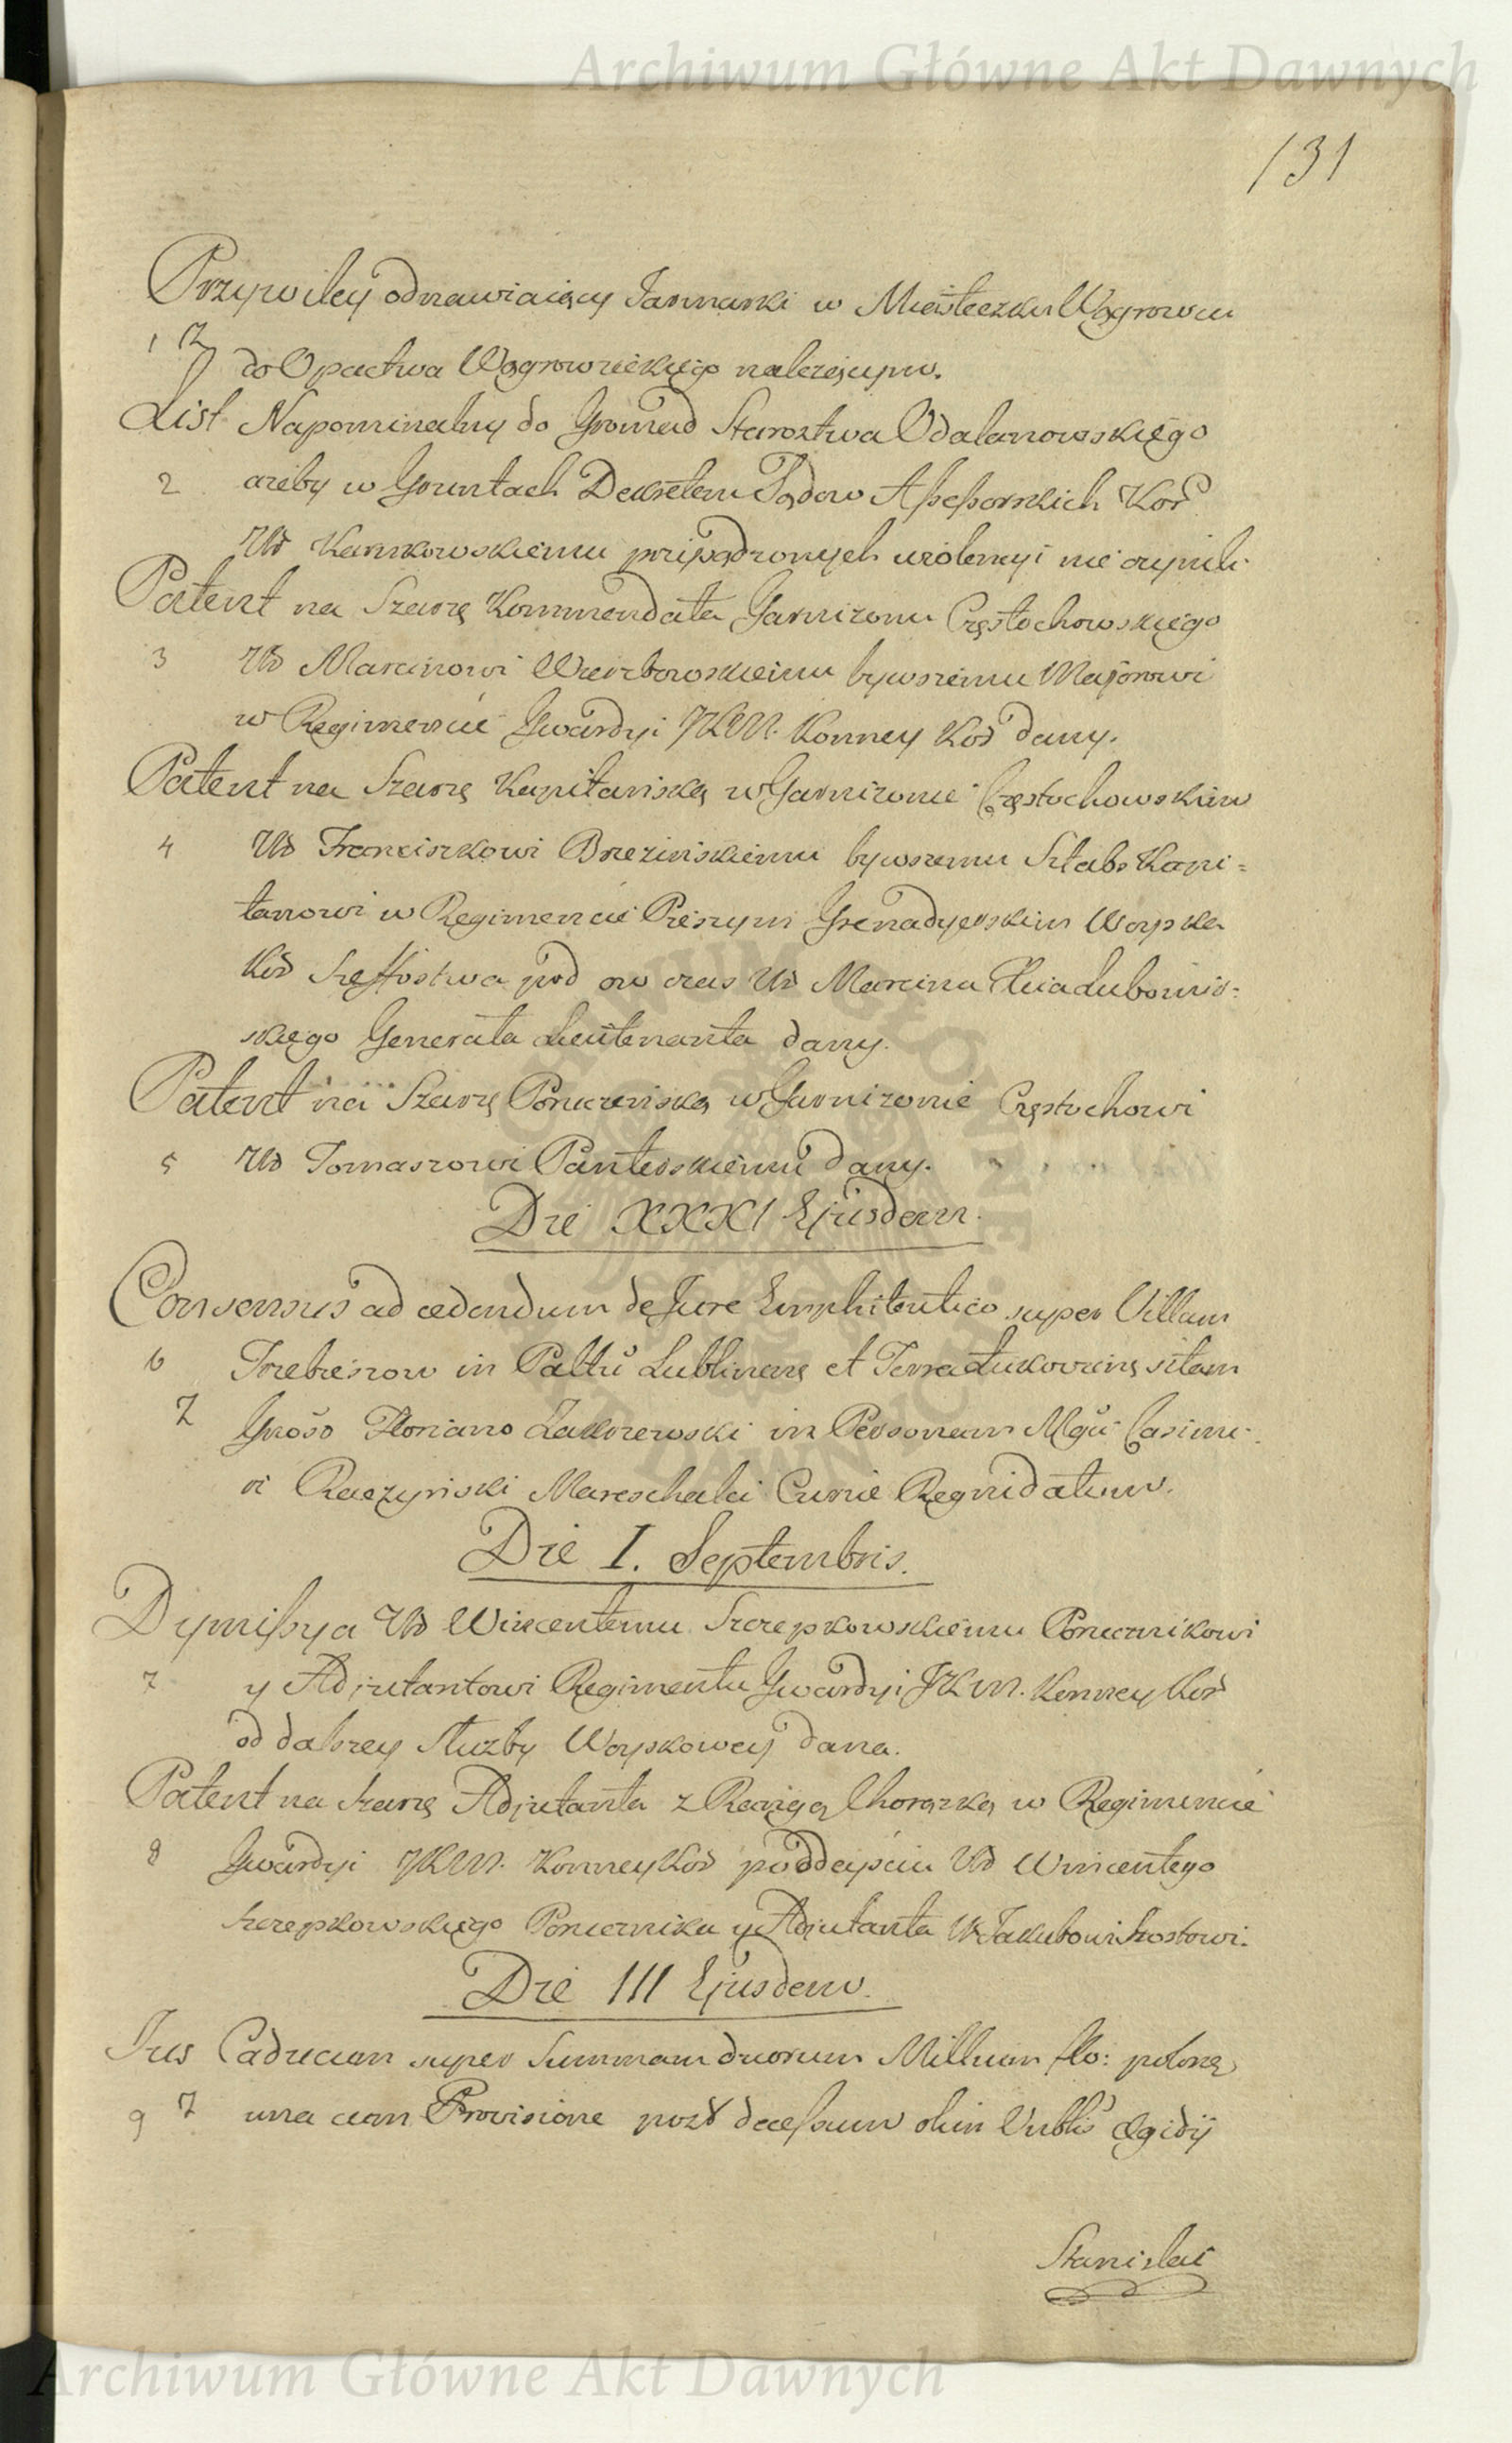 Archiwum Główne Akt Dawnych
131
Przywiley odnawiaiący Jarmarki w Miasteczku Wągrowcu
1 7 do Opactwa Wągrowieckiego należącym.
List Napominalny do Gromad Starostwa Odalanowskiego
2 ażeby w Gruntach Dekretem Sądow Assessorskich Kor̃
Ur̃ Karnkowskiemu przysądzonych wiolencyi nie czynili
Patent na Szarżę Kommendáta Garnizonu Częstochowskiego
3 Ur̃ Marcinowi Wierzbowskiemu bywszemu Majorowi
w Regimencie Gwardyi JKM. Konney Kor̃ dany.
Patent na Szarżę Kapitańską w Garnizonie Częstochowskim
4 Ur̃ Franciszkowi Brzezińskiemu bywszemu Sztabs Kapi=
tanowi w Regimencie Pieszym Grenadyerskim Woyska
Kor̃ Szeffostwa pod ow czas Ur̃ Marcina
skiego Generała Leütenanta dany.
Patent na Szarżę Poruczniską w Garnizonie Częstochowi
5 Ur̃ Tomaszowi Panterskiemu dany.
Die XXXI Ejusdem.
Consensus ad cedendum de Jure Emphiteutico super Villam
6 Trzebieszow in Paltũ Lublinenę et Terra Łukovienę sitam
7 Gnoso Floriano Zakrzewski in Personam Mgci Casimi-
ri Raczyński Mareschalci Curiæ Regni datum.
Die I. Septembris.
Dymissya Ur̃ Wincentemu Szczepkowskiemu Porucznikowi
7 y Adjutantowi Regimentu Gwardyi JKM. Konney Kor̃
od dalszey służby Woyskowey dana.
Patent na Szarżę Adjutanta z Rangą Chorązką w Regimencie
8 Gwardyi JKM. Konney Kor̃ po odeyściu Ur̃ Wincentego
Szczepkowskiego Porucznika y Adjutanta Ur̃ Jakubowi Szostowi.
Die III Ejusdem.
Jus Caducum super Summam duorum Millium flo: polonę
9 7 una cum Provisione post decessum olim Nublis Ægidij
Stanislai
Archiwum Główne Akt Dawnych